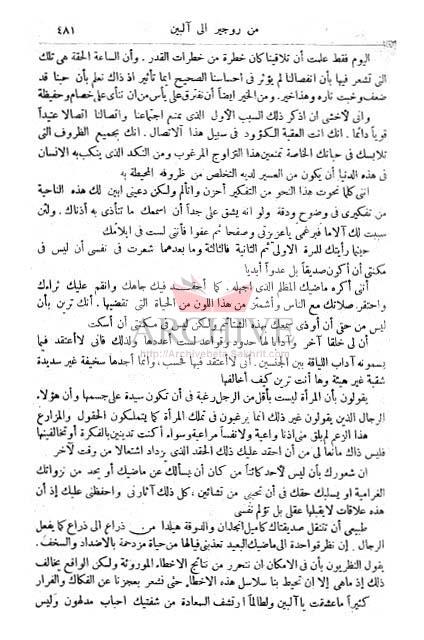 من روجير الى آلين ٤٨١
اليوم فقط علمت أن تلاقينا كان خطرة من خطرات القدر. وأن الساعة الحقة هي تلك
التي تشعر فيها بأن انفصالنا لم يؤثر في احساسنا الصحيح ايما تأثير اذ ذاك نعلم بأن حبنا قد
ضعف وخبت ناره وهذا خير. ومن الخير ايضاً أن نفترق على يأس من ان ننأى على خصام وحفيظة
واني لأخشى ان اذكر ذلك السبب الأول الذي يمنع اجتماعنا واتصالنا اتصالا عتيداً
قوياً دائماً. انك انت العقبة الكؤود في سبيل هذا الاتصال. انك بجميع الظروف التي
تلابسك في حياتك الخاصة تمنعين هذا التزاوج المرغوب ومن النكد الذي ينكب به الانسان
في هذه الدنيا أن يكون من العسير لديه التخلص من ظروفه المحيطة به
انني كلما نحوت هذا النحو من التفكير أحزن وأتألم ولكن دعيني ابين لك هذه الناحية
من تفكيري في وضوح ودقة ولو انه يشق على جداً أن اسمعك ما تتأذى به أذناك. ولئن
سببت لك آلاما فبرغمي ياعزيزتي وصفحا ثم عفوا فأنني لست في ايلامك
حينما رأيتك للمرة الاولى ثم الثانية فالثالثة وما بعدهما شعرت في نفسي أن ليس في
مكنتي أن أكون صديقاً بل عدواً أبديا
أنني أكره ماضيك المظلم الذي اجهله. كما أحقد فيك جاهك وانقم عليك ثراءك
واحتقر صلاتك مع الناس وأشمئز من هذا اللون من الحياة التي تقضيها. أنك ترين بأن
ليس من حقي أن أوذي سمعك بهذه الشتائم ولكن ليس في مكنتي أن أسكت
أن لي خلقا آخر وآدابا لها حدود وقواعد لست أعددها ولذلك فاني لا أعتقد فيما
يسمونه آداب اللياقة بين الجنسين. أنى لا أعتقد فيها فحسب، وانما أجدها سخيفة غير سديدة
شقية غير هيئة وها أنت ترين كيف أخالفها
يقولون بأن المرأة ليست بأقل من الرجل رغبة في أن تكون سيدة على جسمها وأن هؤلاء
الرجال الذين يقولون غير ذلك انما يرغبون في تملك المرأة كما يتملكون الحقول والمزارع
هذا الزعم لم يلق منى اذنا واعية ولا نفساً مراعية وسواء أكنت تدينين بالفكرة أو تخالفينها
فليس ذاك مانعاً لي من أن احقد عليك ذلك الحقد الذي يزداد اشتعالا من وقت لآخر
ان شعورك بأن ليس لأحد كائناً من كان أن يسألك عن ماضيك أو يحد من نزواتك
الغرامية او يسلبك حقك في أن تحبي من تشائين، كل ذلك آثارني وأحفظني عليك إذ أن
هذه علاقات لا يقبلها عقلي بل تؤلم نفسي
طبيعي أن تتنقل صديقتاك كاميل انجدان والدوقة هيلدا من ذراع الى ذراع كما يفعل
الرجال. إن نظرة واحدة الى ماضيك البعيد تعذبني فيالها من حياة مزدحمة بالاضداد والسخف.
يقول النظريون بأن في الامكان ان نتحرر من نتائج الاخطاء الموروثة ولكن الواقع يخالف
ذلك إذ ماهي إلا ان تحيط بنا سلاسل هذه الاخطاء حتى نشعر بعجزنا عن الفكاك والفرار
كثيراً ما عشقت يا آلين ولطالما ارتشف السعادة من شفتيك احباب مدلهون وليس
ARCHIVE
http://Archivebeta.Sakhrit.com